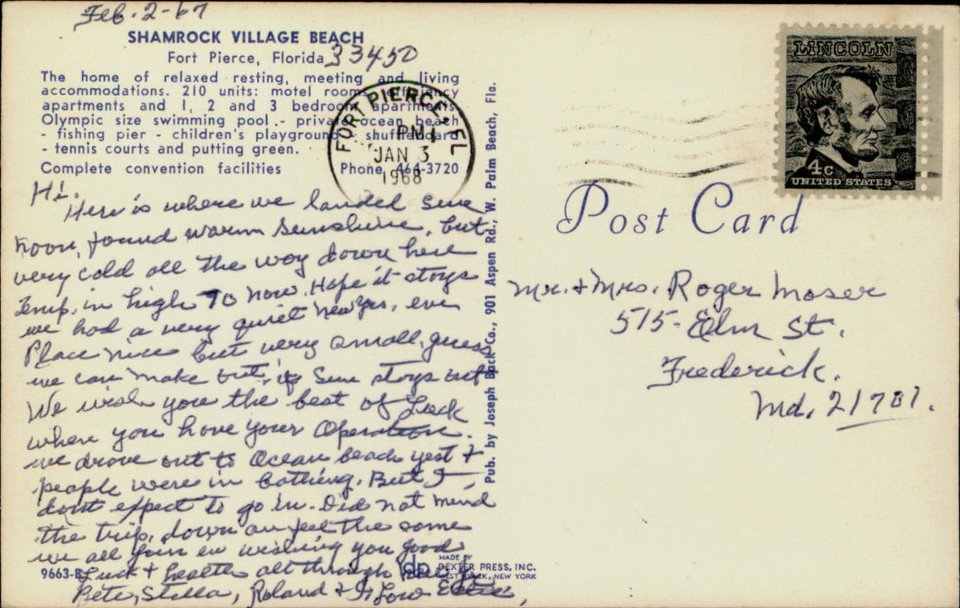 Feb. 2-67
SHAMROCK VILLAGE BEACH
Fort Pierce, Florida 33450
The home of relaxed resting, meeting and living
accommodations. 210 units: motel rooms, efficiency
apartments and 1, 2 and 3 bedroom apartments.
Olympic size swimming pool - private ocean beach
- fishing pier - children's playground - shuffleboard
- tennis courts and putting green.
Complete convention facilities Phone 464-3720
Hi.
Here is where we landed Sun
noon, found warm Sunshine, but
very cold all the way down here
Temp. in high 70 now. Hope it stays
we had a very quiet New Yrs. eve
Place nice but very small, guess
we can make out, if Sun stays out
We wish you the best of Luck
when you have your Operation.
we drove out to Ocean beach yest +
people were in bathing. But I
dont expect to go in. Did not mind
the trip down an feel the same
we all join in wishing you good
Luck + health all through
Pete, Stella, Roland +
9663-B
MADE BY
DEXTER PRESS, INC.
WEST NYACK, NEW YORK
Pub. by Joseph Back Co., 901 Aspen Rd., W. Palm Beach, Fla.
FORT PIERCE, FL
PM
JAN 3
1968
LINCOLN
4c
UNITED STATES
Post Card
Mr. + Mrs. Roger Moser
515- Elm St.
Frederick.
Md. 21701.